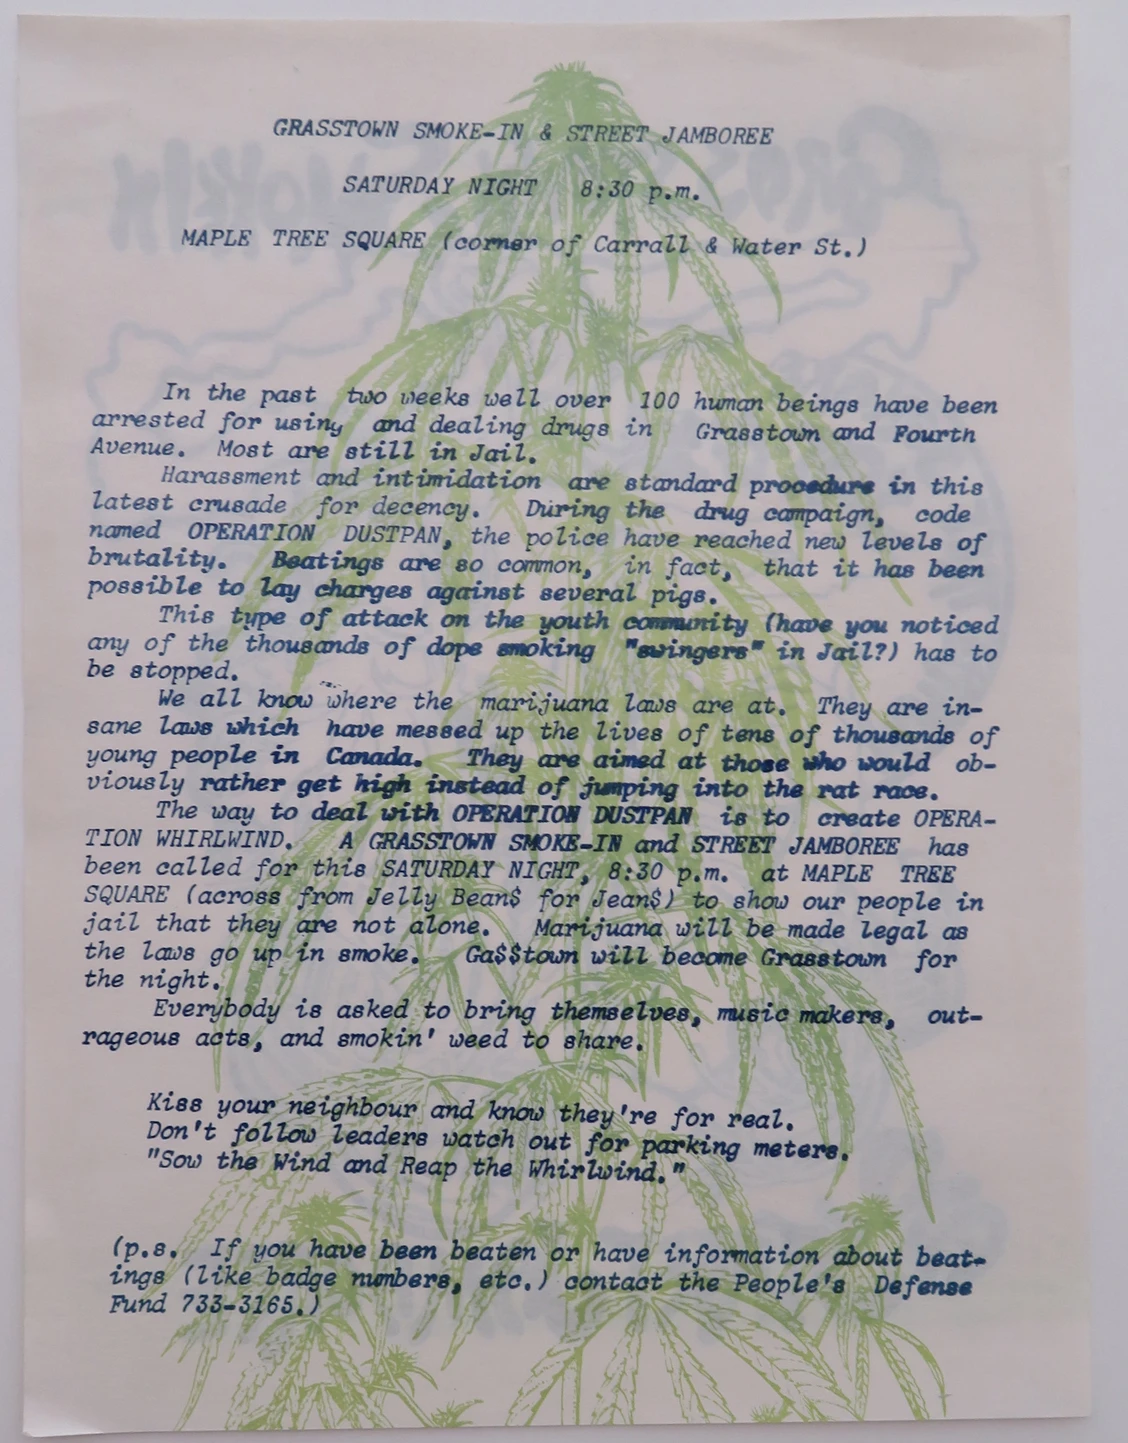 GRASSTOWN SMOKE-IN & STREET JAMBOREE
SATURDAY NIGHT 8:30 p.m.
MAPLE TREE SQUARE (corner of Carrall & Water St.)
In the past two weeks well over 100 human beings have been
arrested for using and dealing drugs in Grasstown and Fourth
Avenue. Most are still in Jail.
Harassment and intimidation are standard procedure in this
latest crusade for decency. During the drug campaign, code
named OPERATION DUSTPAN, the police have reached new levels of
brutality. Beatings are so common, in fact, that it has been
possible to lay charges against several pigs.
This type of attack on the youth community (have you noticed
any of the thousands of dope smoking "swingers" in Jail?) has to
be stopped.
We all know where the marijuana laws are at. They are in-
sane laws which have messed up the lives of tens of thousands of
young people in Canada. They are aimed at those who would ob-
viously rather get high instead of jumping into the rat race.
The way to deal with OPERATION DUSTPAN is to create OPERA-
TION WHIRLWIND. A GRASSTOWN SMOKE-IN and STREET JAMBOREE has
been called for this SATURDAY NIGHT, 8:30 p.m. at MAPLE TREE
SQUARE (across from Jelly Bean$ for Jean$) to show our people in
jail that they are not alone. Marijuana will be made legal as
the laws go up in smoke. Ga$$town will become Grasstown for
the night.
Everybody is asked to bring themselves, music makers, out-
rageous acts, and smokin' weed to share.
Kiss your neighbour and know they're for real.
Don't follow leaders watch out for parking meters.
"Sow the Wind and Reap the Whirlwind."
(p.s. If you have been beaten or have information about beat-
ings (like badge numbers, etc.) contact the People's Defense
Fund 733-3165.)